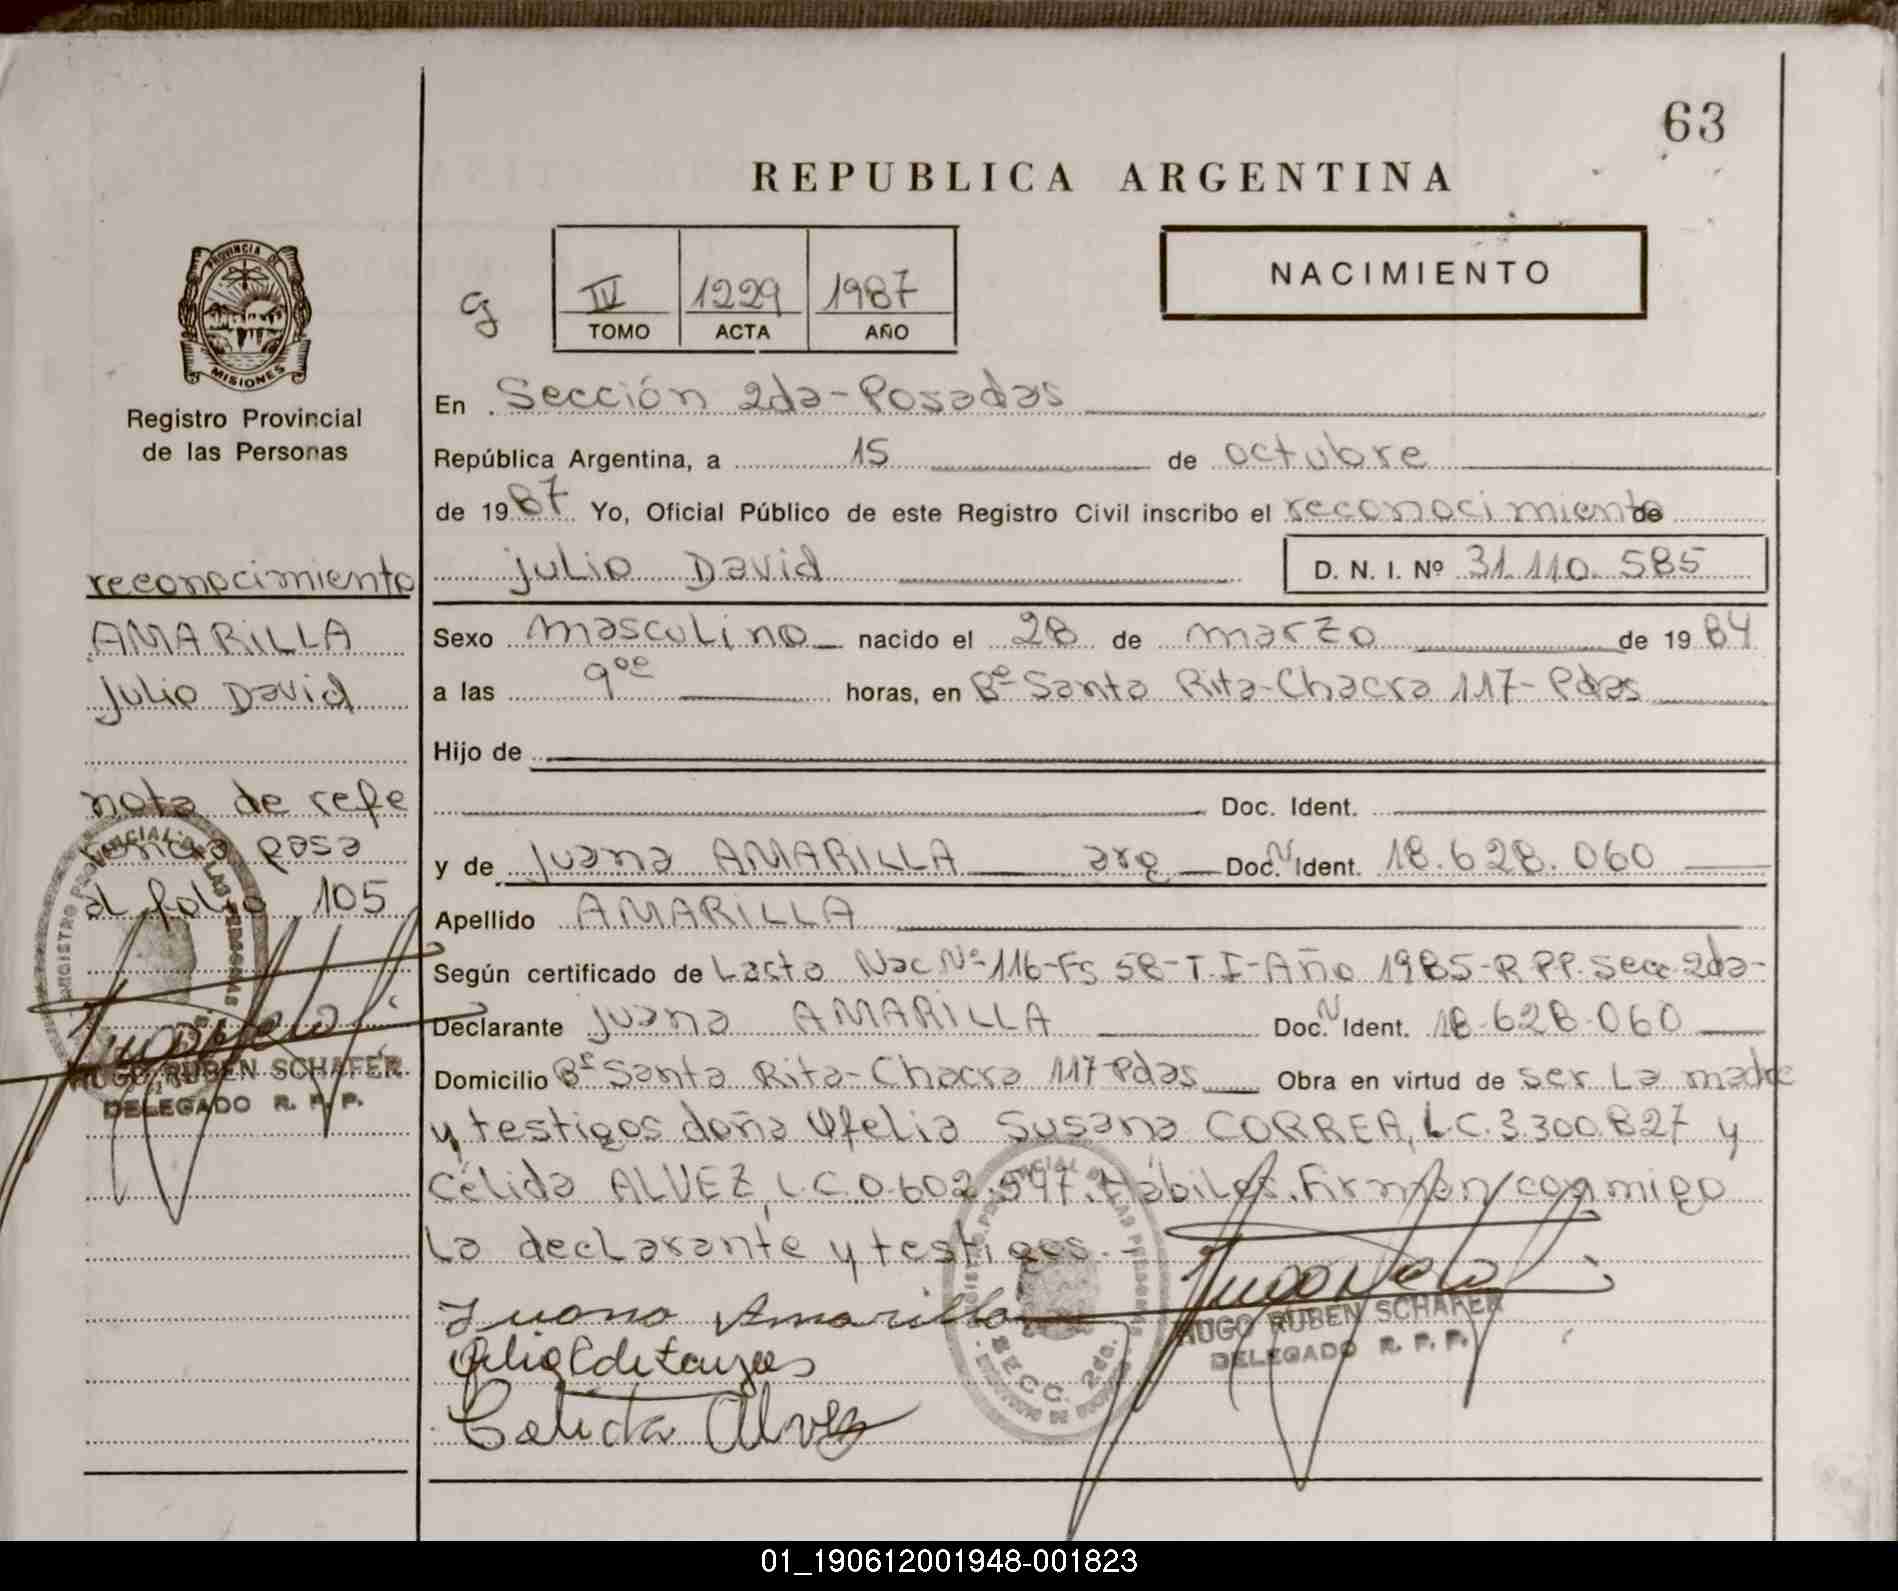 63
REPUBLICA ARGENTINA
PROVINCIA DE
MISIONES
Registro Provincial
de las Personas
g
IV 1229 1987
TOMO ACTA AÑO
NACIMIENTO
En Sección 2da-Posadas
República Argentina, a 15 de octubre
de 1987 Yo, Oficial Público de este Registro Civil inscribo el reconocimiento de
Julio David D. N. I. Nº 31.110.585
Sexo masculino nacido el 28 de marzo de 1984
a las 9ºº horas, en Bº Santa Rita-Chacra 117-Pdas
Hijo de
Doc. Ident.
y de Juana AMARILLA arg Doc. N Ident. 18.628.060
Apellido AMARILLA
Según certificado de L acta Nac Nº-116-Fs 58-T.I-Año 1985-R.P.P. Secc 2da-
Declarante Juana AMARILLA Doc. N Ident. 18.628.060
Domicilio Bº Santa Rita-Chacra 117-Pdas Obra en virtud de ser la madre
y testigos doña Ofelia Susana CORREA, L.C.3.300.827 y
Célida ALVEZ, L.C.0.602.547. Hábiles. Firman conmigo
la declarante y testigos.-
Juana Amarilla
Celida Alvez
HUGO RUBEN SCHAFER
DELEGADO R. P. P.
SECC. 2da.
reconocimiento
AMARILLA
Julio David
nota de refe
rencia pasa
al folio 105
REGISTRO PROVINCIAL DE LAS PERSONAS
HUGO RUBEN SCHAFER
DELEGADO R. P. P.
01_190612001948-001823